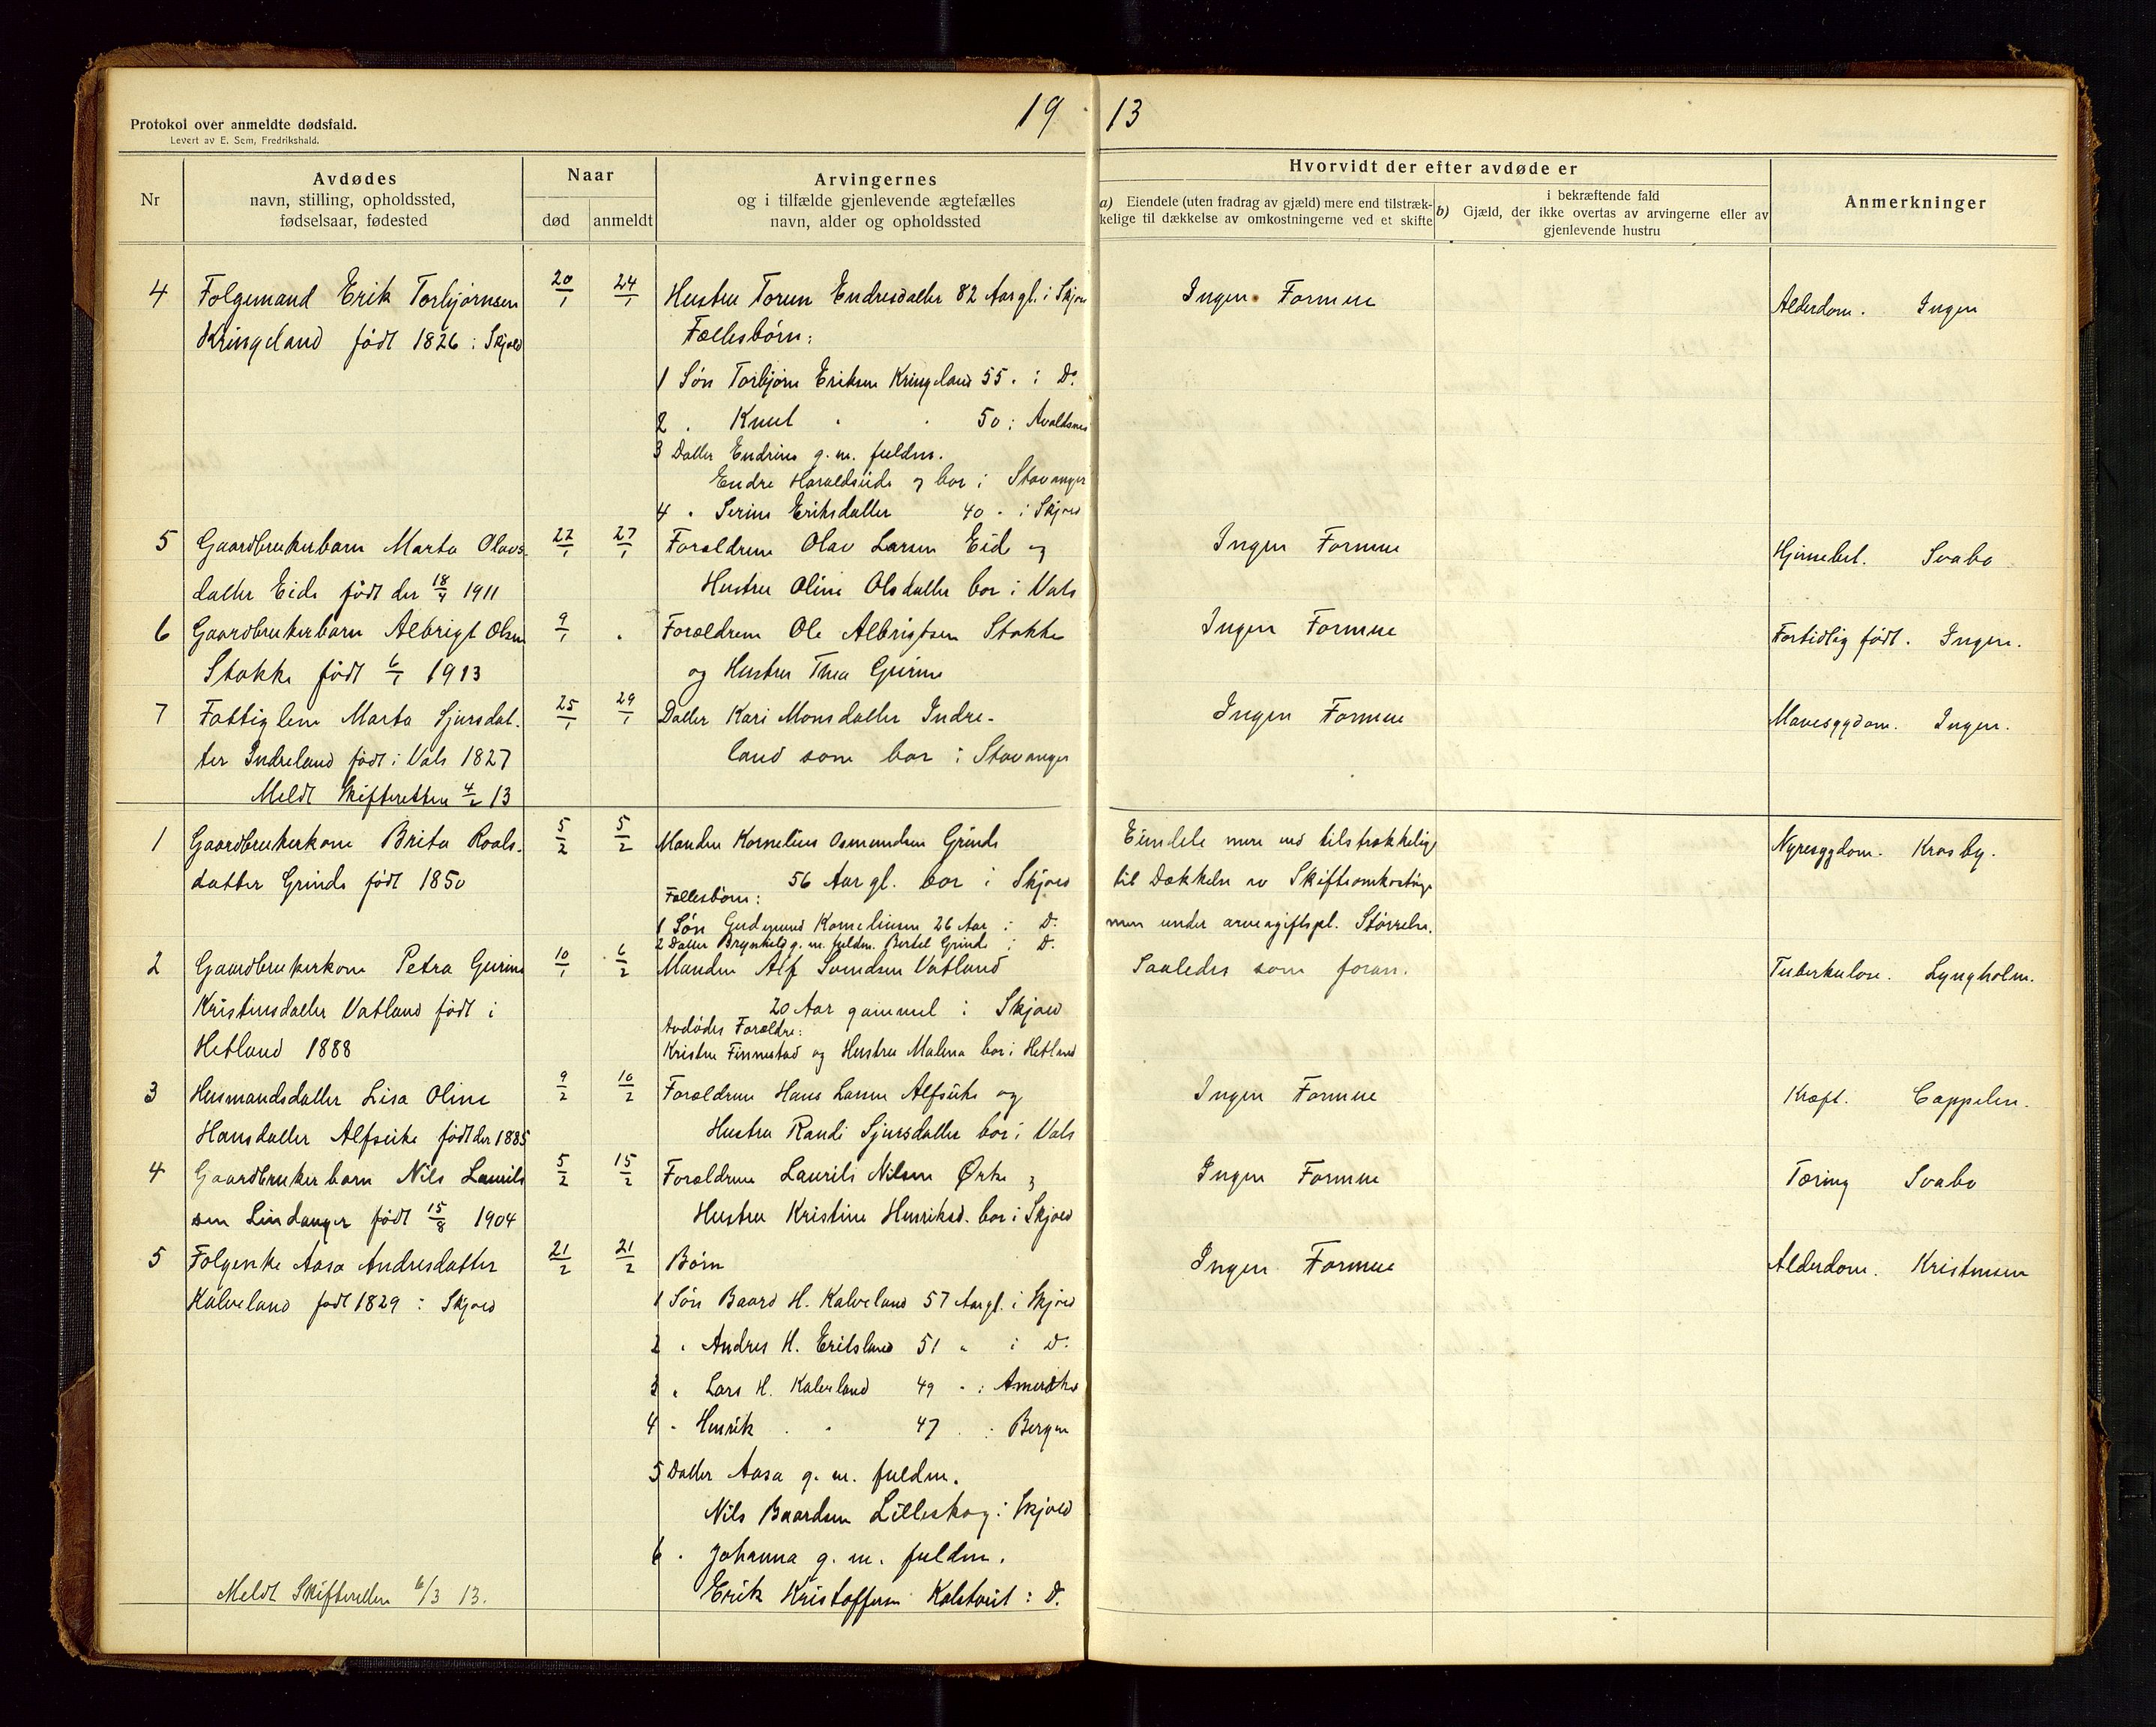 19 13
Protokol over anmeldte dødsfald.
Levert av E. Sem, Fredrikshald.
Nr
Avdødes
navn, stilling, opholdssted,
fødselsaar, fødested
Naar
død
anmeldt
Arvingernes
og i tilfælde gjenlevende ægtefælles
navn, alder og opholdssted
Hvorvidt der efter avdøde er
a) Eiendele (uten fradrag av gjæld) mere end tilstræk-
kelige til dækkelse av omkostningerne ved et skifte
i bekræftende fald
b) Gjæld, der ikke overtas av arvingerne eller av
gjenlevende hustru
Anmerkninger
4 Følgemand Erik Torbjørnsen 20/1 24/1 Hustru Torun Endresdatter 82 Aar gl. i Skjold Ingen Formue Alderdom. Ingen
Kringeland født 1826 i Skjold Fællesbørn:
1 Søn Torbjørn Eriksen Kringeland 55 " i Do
2 " Knut " " 50 i Avaldsnes
3 Datter Endrine g. m. fuldm.
Endre Haraldseide og bor i Stavanger
4 " Serine Eriksdatter 40 " i Skjold
5 Gaardbrukerbarn Marta Olavs- 22/1 27/1 Forældrene Olav Larsen Eide og Ingen Formue Hjernebet. Svabo
datter Eide født den 18/4 1911 Hustru Oline Olsdatter bor i Vats
6 Gaardbrukerbarn Albrigt Olsen 9/1 " Forældrene Ole Albrigtsen Stakke Ingen Formue Fortidlig født. Ingen.
Stakke født 6/1 1913 og Hustru Thea Gurine
7 Fattiglem Marta Sjursdat- 25/1 29/1 Datter Kari Monsdatter Indre- Ingen Formue Mavesygdom. Ingen.
ter Indreland født i Vats 1827 land som bor i Stavanger
Meldt Skifteretten 4/2 13
1 Gaardbrukerkone Brita Roals- 5/2 5/2 Manden Kornelius Osmundsen Grinde Eiendele mere end tilstrækkelige Nyresygdom. Krosby.
datter Grinde født 1850 56 Aar gl. bor i Skjold til Dækkelse av Skifteomkostninger
Fællesbørn:
1 Søn Gudmund Korneliusen 26 Aar i Do men under arveavgiftspl. Størrelse.
2 Datter Brynhild g. m. fuldm. Bertel Grinde i Do
2 Gaardbrukerkone Petra Gurine 10/1 6/2 Manden Alf Svendsen Vatland Saaledes som foran. Tuberkulose. Lyngholm.
Kristensdatter Vatland født i 20 Aar gammel i Skjold
Avdødes Forældre:
Hetland 1888 Kristen Finnestad og Hustru Malena bor i Hetland
3 Husmandsdatter Lisa Oline 9/2 10/2 Forældrene Hans Larsen Alfseike og Ingen Formue Kræft. Cappelen.
Hansdatter Alfseike født den 1885 Hustru Randi Sjursdatter bor i Vats
4 Gaardbrukerbarn Nils Laurits 5/2 15/2 Forældrene Laurits Nilsen Ørke og Ingen Formue Tæring Svabo
sen Lindanger født 15/8 1904 Hustru Kristine Henriksd. bor i Skjold
5 Følgenke Aasa Andresdatter 21/2 21/2 Børn Ingen Formue Alderdom. Kristensen
Kalveland født 1829 i Skjold 1 Søn Baard H. Kalveland 57 Aar gl. i Skjold
2 " Andres H. Eritsland 51 " i Do
3 " Lars H. Kalveland 49 " i Amerika
4 " Henrik " " 47 " i Bergen
5 Datter Aasa g. m. fuldm.
Nils Baardsen Lilleskog i Skjold
6 " Johanna g. m. fuldm.
Meldt Skifteretten 6/3 13. Erik Kristoffersen Kalstveit i Do